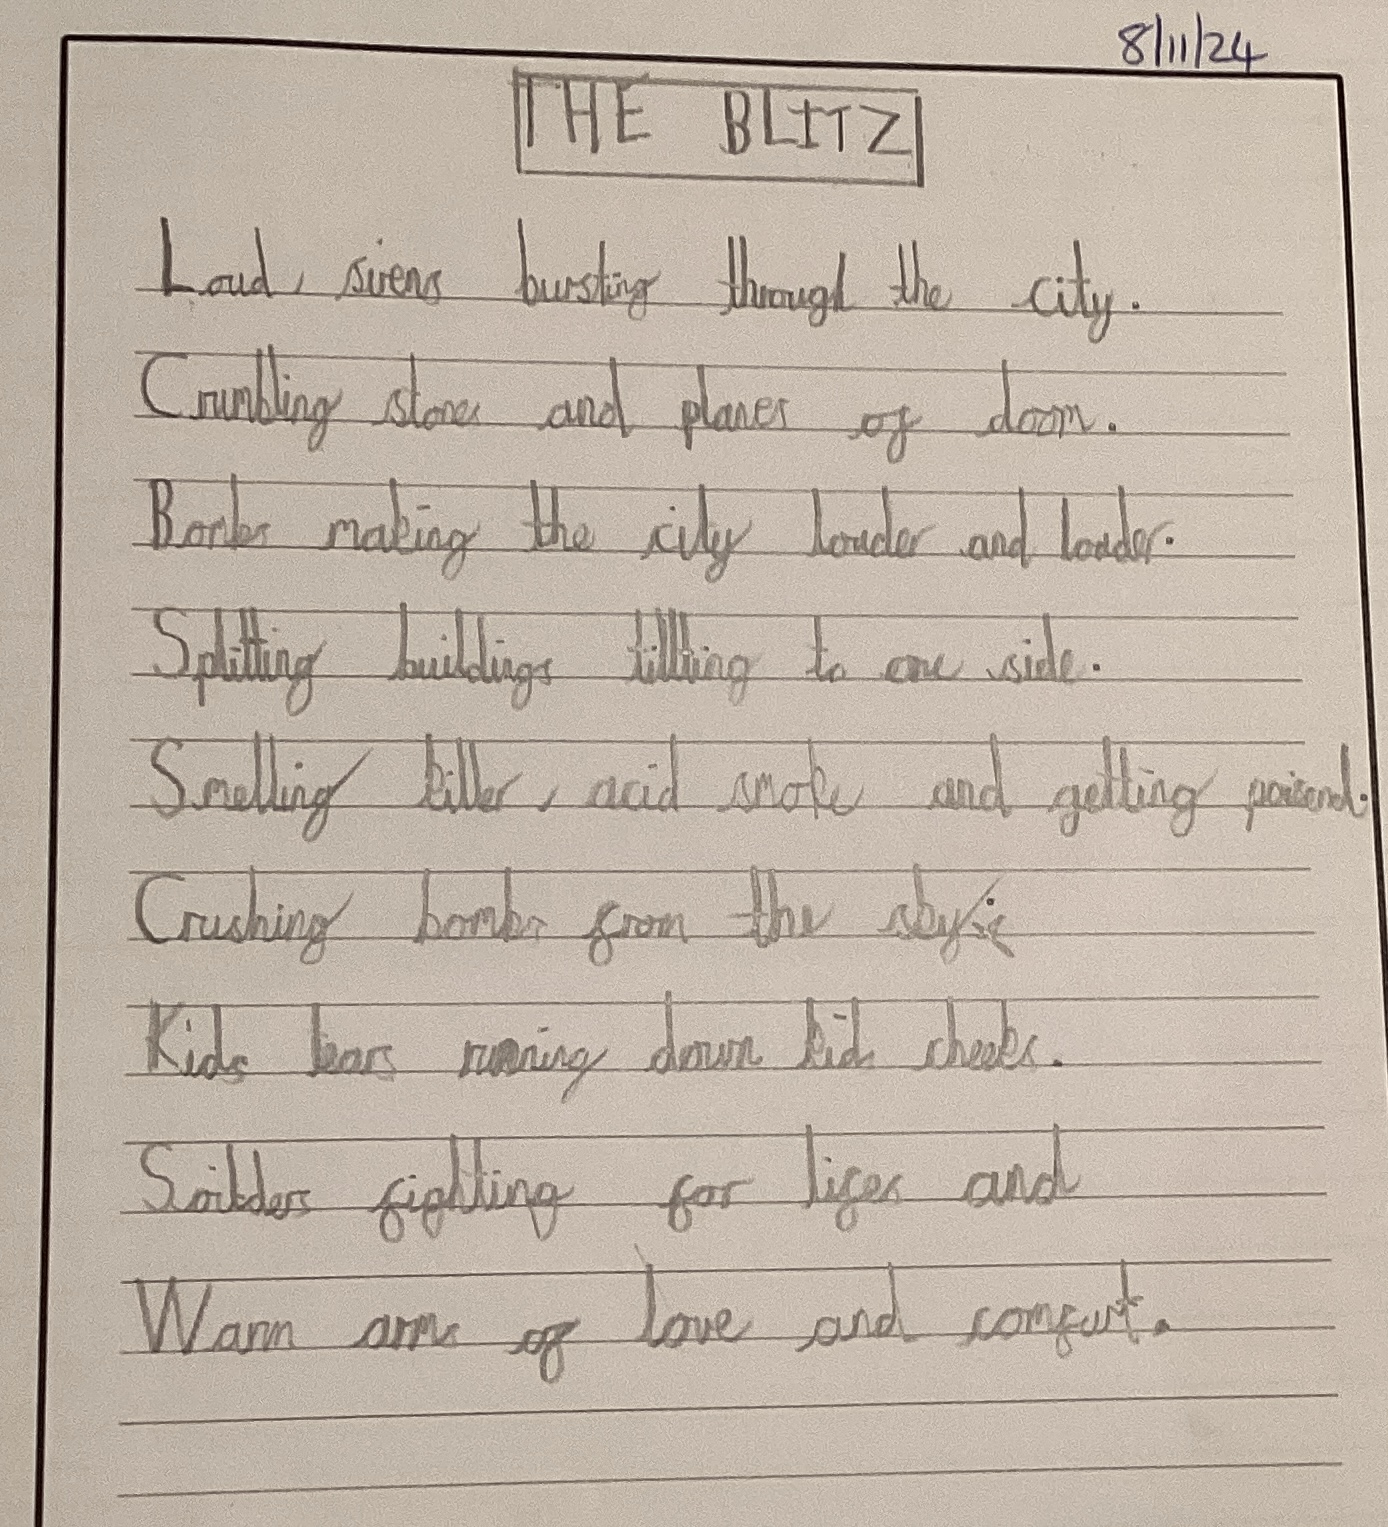 8/11/24
THE BLITZ
Loud, sirens bursting through the city.
Crumbling stones and planes of doom.
Bombs making the city louder and louder.
Splitting buildings tillting to one side.
Smelling killer, acid smoke and getting poisend.
Crushing bombs from the sky
Kids tears running down kids cheeks.
fighting for lifes and
Warm arms of love and comfurt.